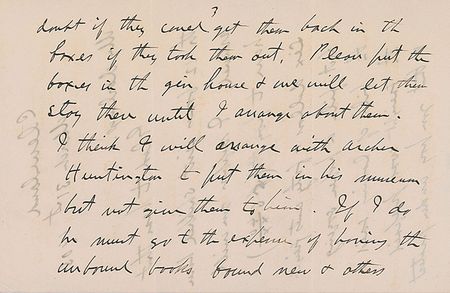 3
doubt if they could get them back in th
boxes if they took them out. Please put the
boxes in the gin house & we will let them
stay there until I arrange about them.
I think I will arrange with Archer
Huntington to put them in his museum
but not give them to him. If I do
he must go to the expense of having the
unbound books bound new & others